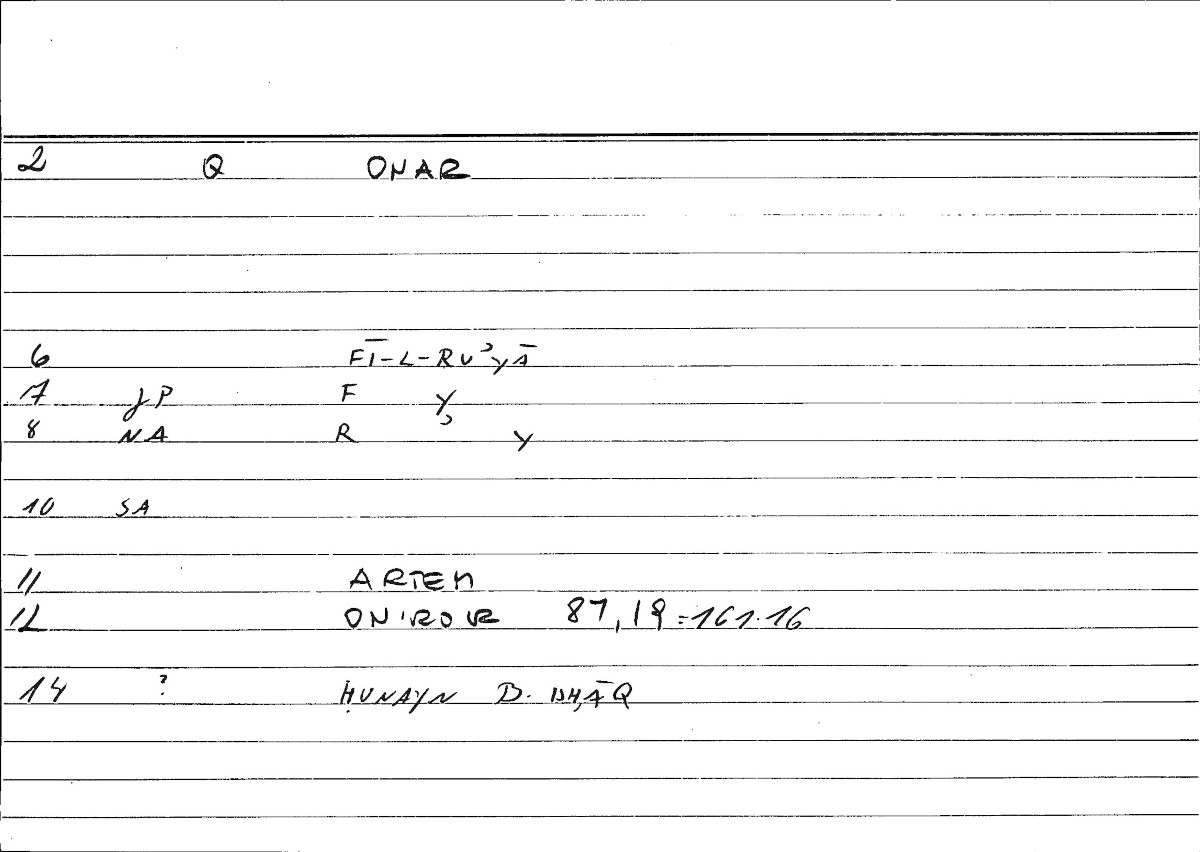 2 Q ONAR
6 FĪ-L-RUʾYĀ
7 JP F Y
8 NA R Y
10 SA
11 ARTEM
12 ONIROKR 87,19 = 161.16
14 ? ḤUNAYN B.